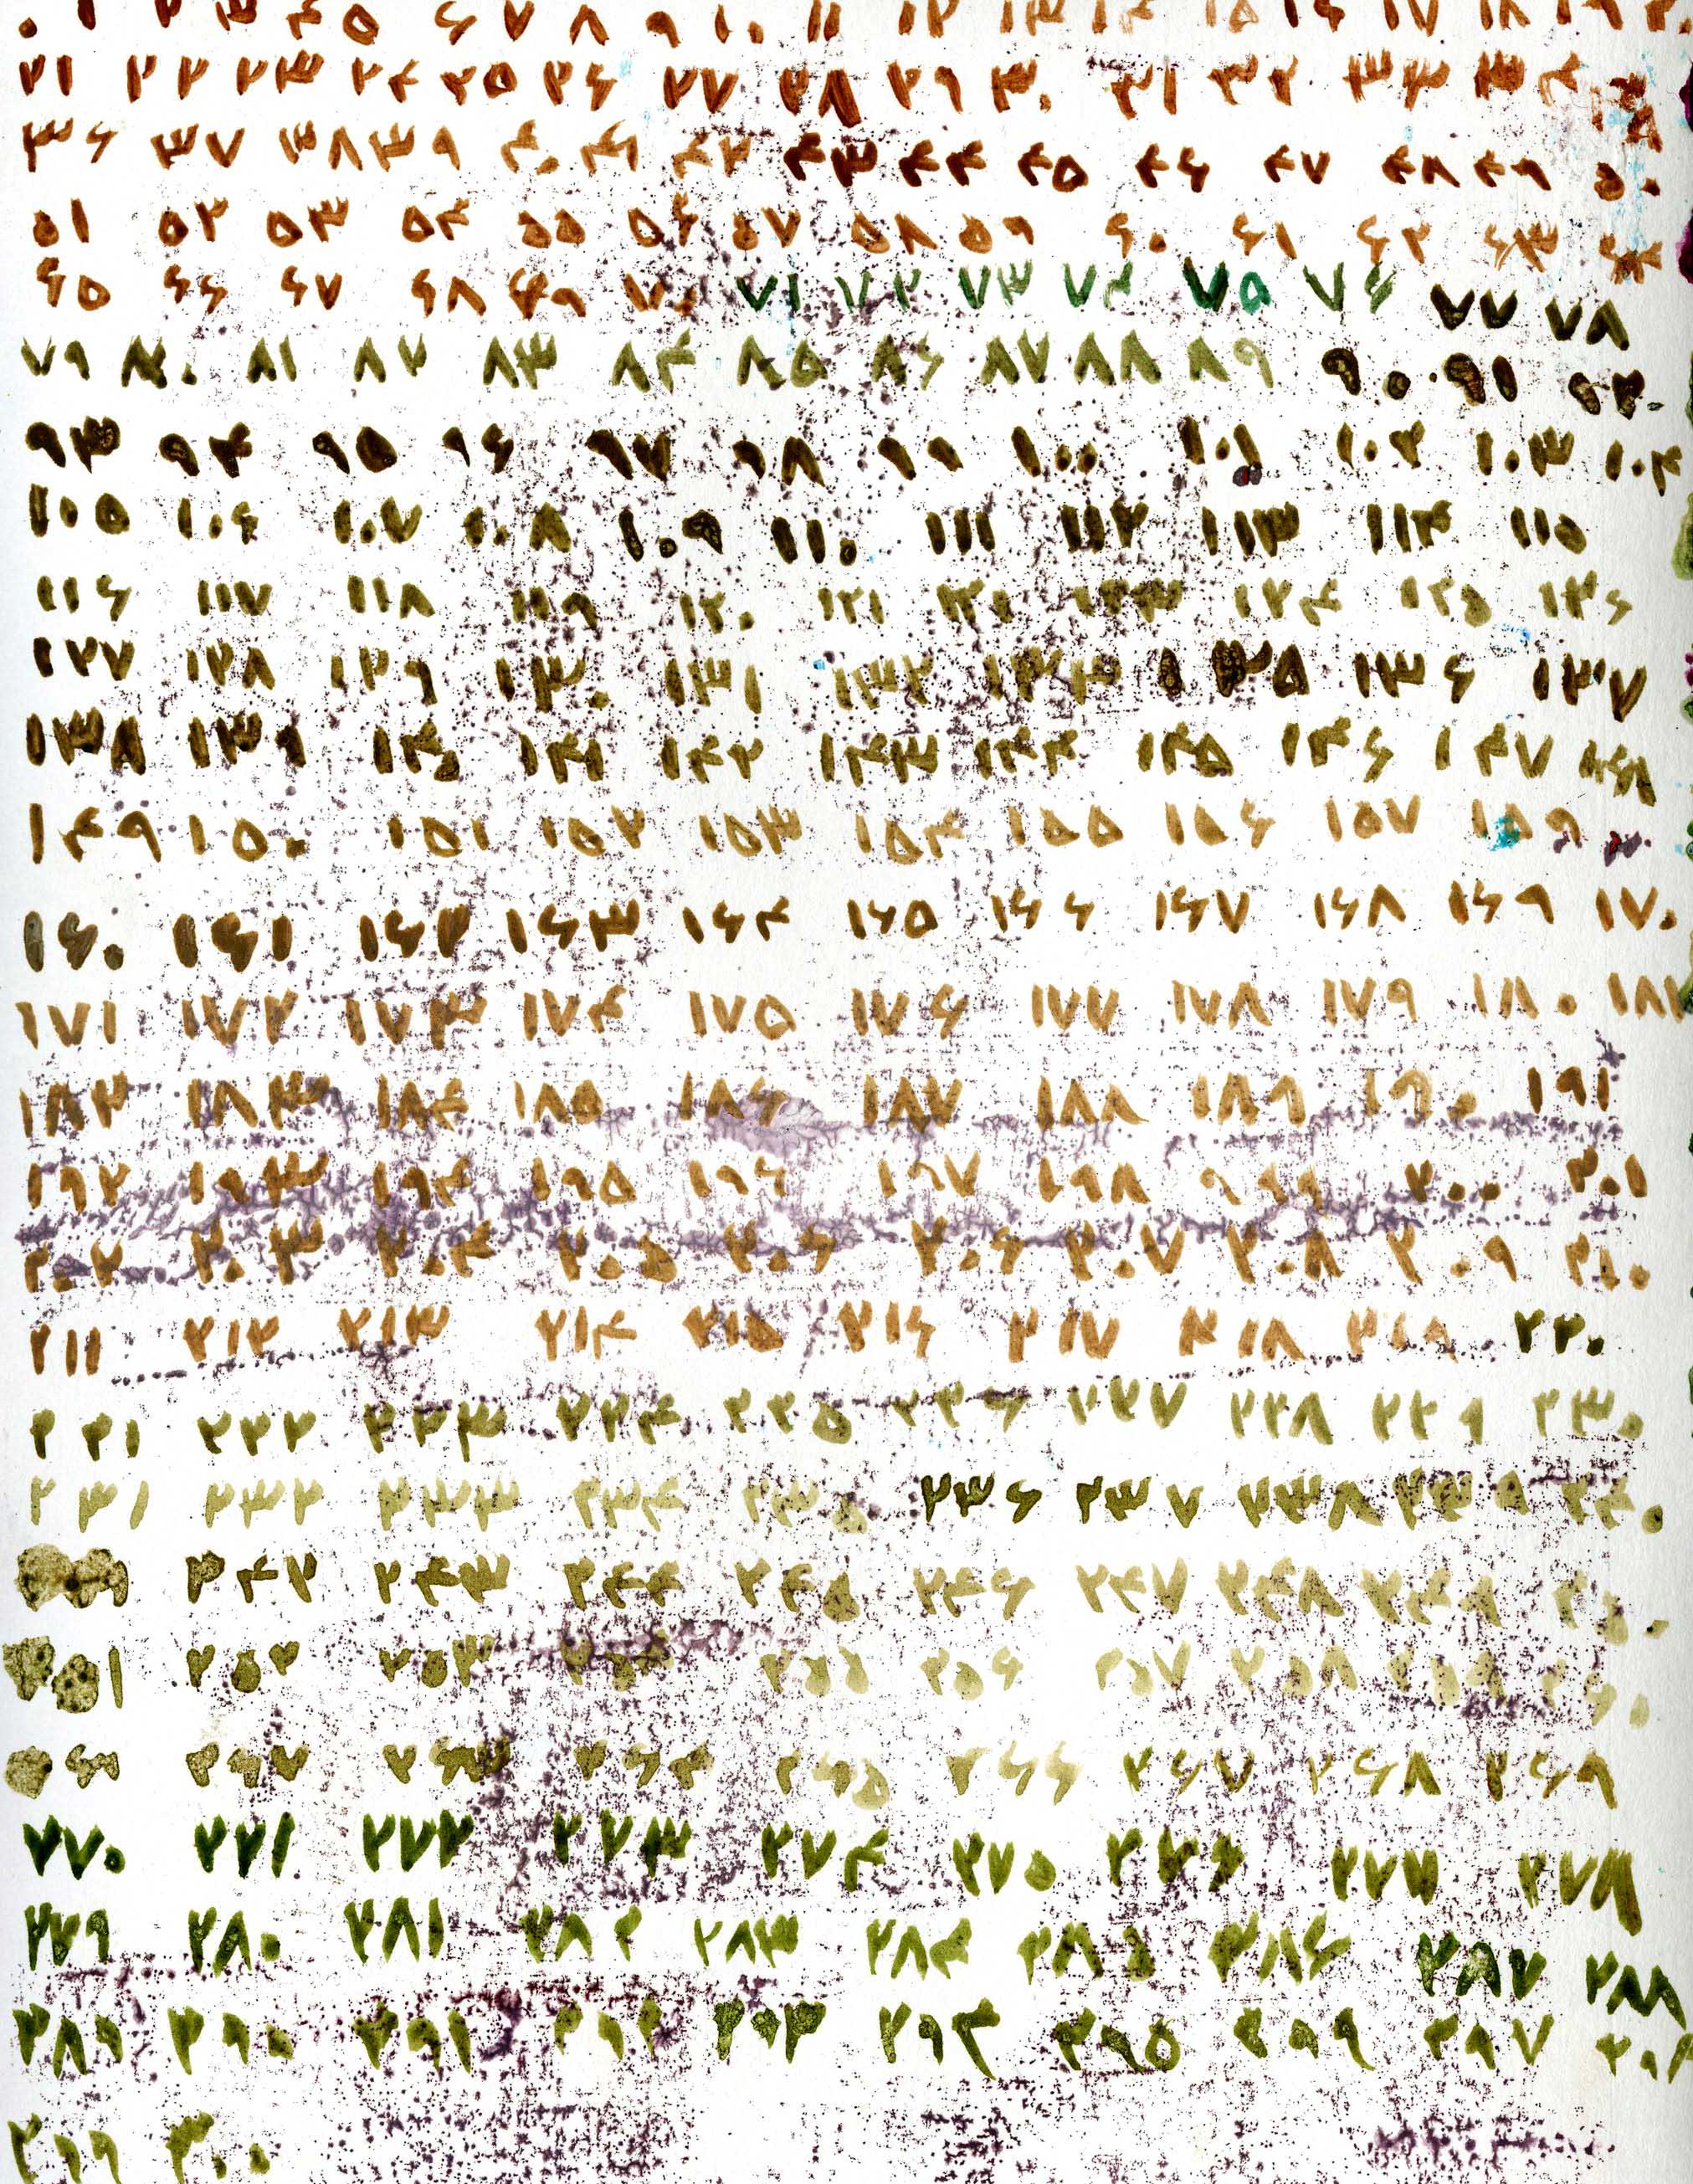 ۰ ۱ ۲ ۳ ۴ ۵ ۶ ۷ ۸ ۹ ۱۰ ۱۱ ۱۲ ۱۳ ۱۴ ۱۵ ۱۶ ۱۷ ۱۸ ۱۹ ۲۰
۲۱ ۲۲ ۲۳ ۲۴ ۲۵ ۲۶ ۲۷ ۲۸ ۲۹ ۳۰ ۳۱ ۳۲ ۳۳ ۳۴ ۳۵
۳۶ ۳۷ ۳۸ ۳۹ ۴۰ ۴۱ ۴۲ ۴۳ ۴۴ ۴۵ ۴۶ ۴۷ ۴۸ ۴۹ ۵۰
۵۱ ۵۲ ۵۳ ۵۴ ۵۵ ۵۶ ۵۷ ۵۸ ۵۹ ۶۰ ۶۱ ۶۲ ۶۳ ۶۴
۶۵ ۶۶ ۶۷ ۶۸ ۶۹ ۷۰ ۷۱ ۷۲ ۷۳ ۷۴ ۷۵ ۷۶ ۷۷ ۷۸
۷۹ ۸۰ ۸۱ ۸۲ ۸۳ ۸۴ ۸۵ ۸۶ ۸۷ ۸۸ ۸۹ ۹۰ ۹۱ ۹۲
۹۳ ۹۴ ۹۵ ۹۶ ۹۷ ۹۸ ۹۹ ۱۰۰ ۱۰۱ ۱۰۲ ۱۰۳ ۱۰۴
۱۰۵ ۱۰۶ ۱۰۷ ۱۰۸ ۱۰۹ ۱۱۰ ۱۱۱ ۱۱۲ ۱۱۳ ۱۱۴ ۱۱۵
۱۱۶ ۱۱۷ ۱۱۸ ۱۱۹ ۱۲۰ ۱۲۱ ۱۲۳ ۱۲۴ ۱۲۵ ۱۲۶
۱۲۷ ۱۲۸ ۱۲۹ ۱۳۰ ۱۳۱ ۱۳۲ ۱۳۳ ۱۳۵ ۱۳۶ ۱۳۷
۱۳۸ ۱۳۹ ۱۴۰ ۱۴۱ ۱۴۲ ۱۴۳ ۱۴۴ ۱۴۵ ۱۴۶ ۱۴۷ ۱۴۸
۱۴۹ ۱۵۰ ۱۵۱ ۱۵۲ ۱۵۳ ۱۵۴ ۱۵۵ ۱۵۶ ۱۵۷ ۱۵۹
۱۶۰ ۱۶۱ ۱۶۲ ۱۶۳ ۱۶۴ ۱۶۵ ۱۶۶ ۱۶۷ ۱۶۸ ۱۶۹ ۱۷۰
۱۷۱ ۱۷۲ ۱۷۳ ۱۷۴ ۱۷۵ ۱۷۶ ۱۷۷ ۱۷۸ ۱۷۹ ۱۸۰
۱۸۲ ۱۸۳ ۱۸۴ ۱۸۵ ۱۸۶ ۱۸۷ ۱۸۸ ۱۸۹ ۱۹۰ ۱۹۱
۱۹۲ ۱۹۳ ۱۹۴ ۱۹۵ ۱۹۶ ۱۹۷ ۱۹۸ ۹۹۹ ۲۰۰ ۲۰۱
۲۰۲ ۲۰۳ ۲۰۴ ۲۰۵ ۲۰۶ ۲۰۶ ۲۰۷ ۲۰۸ ۲۰۹ ۲۱۰
۲۱۱ ۲۱۲ ۲۱۳ ۲۱۴ ۲۱۵ ۲۱۶ ۲۱۷ ۲۱۸ ۲۱۹ ۲۲۰
۲۲۱ ۲۲۲ ۲۲۳ ۲۲۴ ۲۲۵ ۲۲۶ ۲۲۷ ۲۲۸ ۲۲۹ ۲۳۰
۲۳۱ ۲۳۲ ۲۳۳ ۲۳۴ ۲۳۵ ۲۳۶ ۲۳۷ ۲۳۸ ۲۳۹ ۲۴۰
۲۴۲ ۲۴۳ ۲۴۴ ۲۴۵ ۲۴۶ ۲۴۷ ۲۴۸ ۲۴۹ ۲۵۰
۲۵۲ ۲۵۳ ۲۵۴ ۲۵۵ ۲۵۶ ۲۵۷ ۲۵۸ ۲۵۹ ۲۶۰
۲۶۲ ۲۶۳ ۲۶۴ ۲۶۵ ۲۶۶ ۲۶۷ ۲۶۸ ۲۶۹
۲۷۰ ۲۷۱ ۲۷۲ ۲۷۳ ۲۷۴ ۲۷۵ ۲۷۶ ۲۷۷ ۲۷۸
۲۷۹ ۲۸۰ ۲۸۱ ۲۸۲ ۲۸۳ ۲۸۴ ۲۸۵ ۲۸۶ ۲۸۷ ۲۸۸
۲۸۹ ۲۹۰ ۲۹۱ ۲۹۲ ۲۹۳ ۲۹۴ ۲۹۵ ۲۹۷
۲۹۹ ۳۰۰